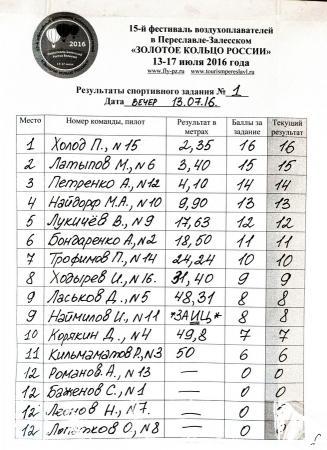 2016
15-й фестиваль воздухоплавателей
в Переславле-Залесском
«ЗОЛОТОЕ КОЛЬЦО РОССИИ»
13-17 июля 2016 года
www.fly-pz.ru www.tourismpereslavl.ru
Результаты спортивного задания № 1
Дата вечер 13.07.16.
Место Номер команды, пилот Результат в метрах Баллы за задание Текущий результат
1 Холод П., N 15 2,35 16 16
2 Латыпов М., N 6 3,40 15 15
3 Петренко А., N 12 4,10 14 14
4 Найдорф М.А., N 10 9,90 13 13
5 Лукичёв В., N 9 17,63 12 12
6 Бондаренко А., N 2 18,50 11 11
7 Трофимов П., N 14 24,24 10 10
8 Ходырев И., N 16. 31,40 9 9
9 Ласьков Д., N 5 48,31 8 8
9 Наймилов И., N 11 *ЗАИЦ* 8 8
10 Корякин Д., N 4 49,8 7 7
11 Кильмаматов Р., N 3 50 6 6
12 Романов. А., N 13 — 0 0
12 Баженов С., N 1 — 0 0
12 Н., N 7. — 0
12 О, N 8 — 0